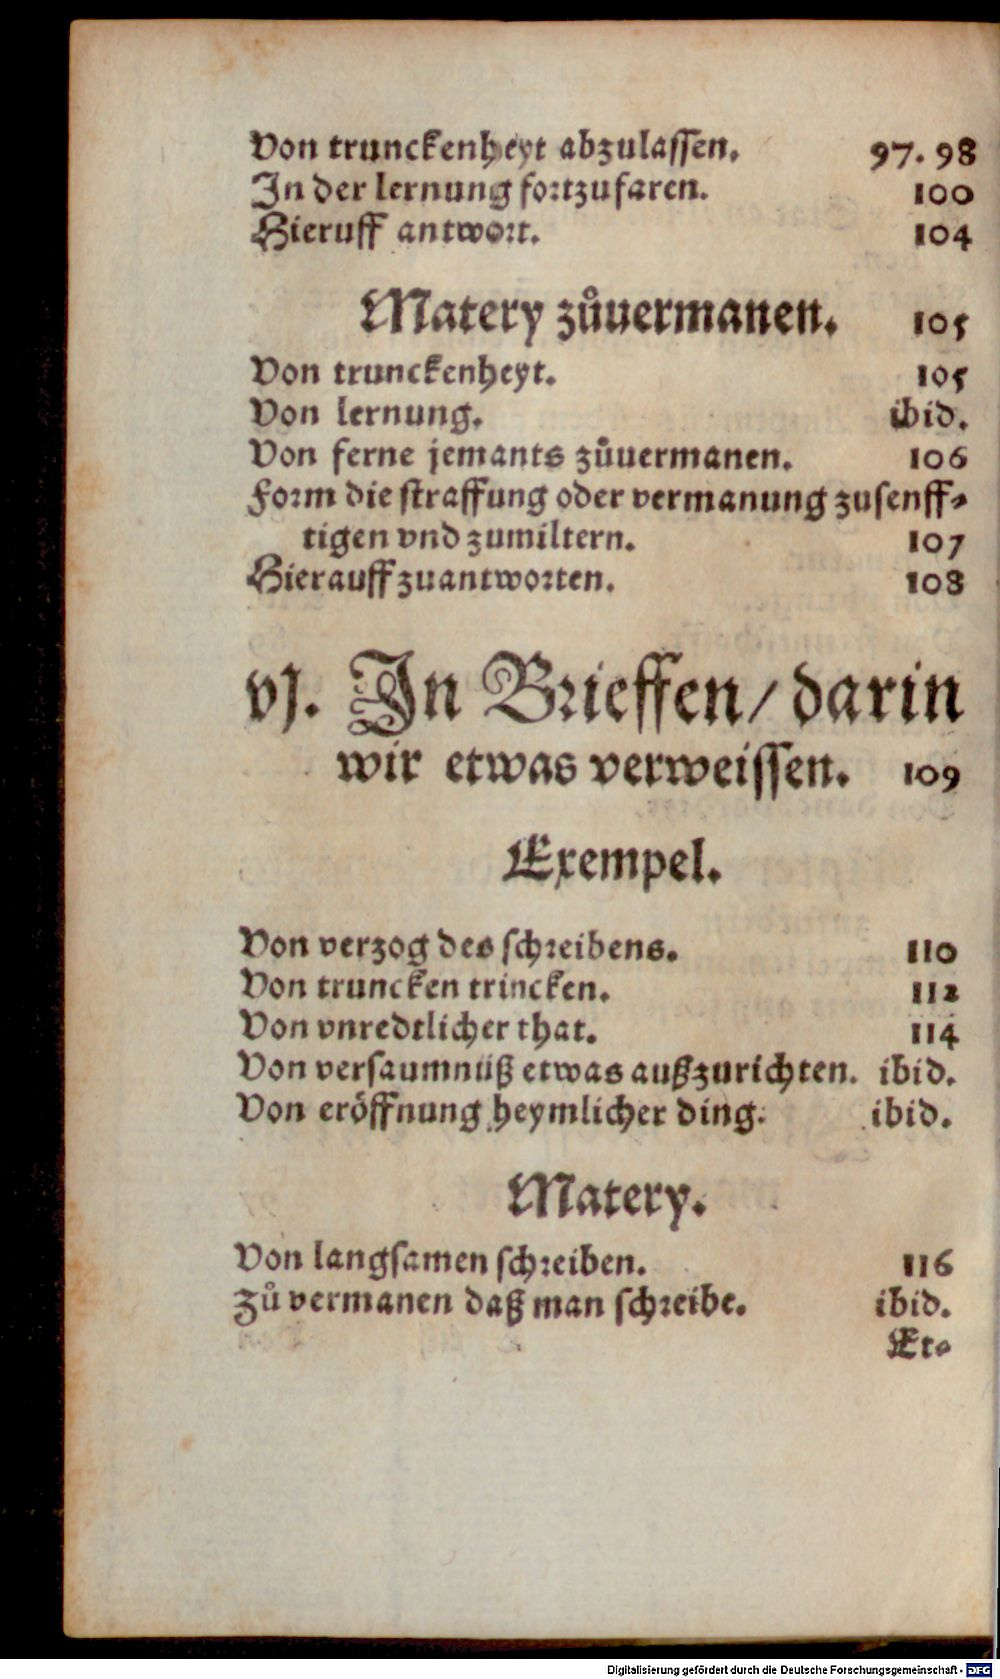 Von trunckenheyt abzulassen. 97. 98
In der lernung fortzufaren. 100
Hieruff antwort. 104
Matery zůuermanen. 105
Von trunckenheyt. 105
Von lernung. ibid.
Von ferne jemants zůuermanen. 106
Form die straffung oder vermanung zusenff-
tigen vnd zumiltern. 107
Hierauff zuantworten. 108
vj. In Brieffen / darin
wir etwas verweissen. 109
Exempel.
Von verzog des schreibens. 110
Von truncken trincken. 112
Von vnredtlicher that. 114
Von versaumnüß etwas außzurichten. ibid.
Von eröffnung heymlicher ding. ibid.
Matery.
Von langsamen schreiben. 116
Zů vermanen daß man schreibe. ibid.
Et-
Digitalisierung gefördert durch die Deutsche Forschungsgemeinschaft - DFG